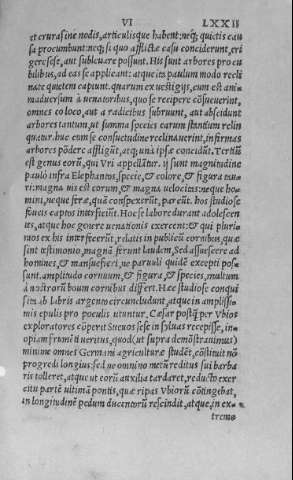 VI LXXII
et crura sine nodis, articulisque habent: neq; quietis cau
sa procumbunt: neq; si quo afflictæ casu conciderunt, eri
gere sese, aut subleuare possunt. His sunt arbores pro cu
bilibus, ad eas se applicant: atque ita paulum modo recli
natæ quietem capiunt. quarum ex uestigijs, cum est ani
maduersum à uenatoribus, quo se recipere cōsueuerint,
omnes eo loco, aut a radicibus subruunt, aut abscidunt
arbores tantum, ut summa species earum stantium relin
quatur. huc cum se consuetudine reclinauerint, infirmas
arbores pōdere affligūt, atq; unà ipsæ concidūt. Tertiū
est genus eorū, qui Vri appellātur. ij sunt magnitudine
paulo infra Elephantos, specie, & colore, & figura tau
ri: magna uis est eorum, & magna uelocitas: neque ho
mini, neque feræ, quā conspexerūt, parcūt. hos studiose
foueis captos interficiūt. Hoc se labore durant adolescen
tes, atque hoc genere uenationis exercent: & qui pluri
mos ex his interfecerūt, relatis in publicū cornibus, quæ
sint testimonio, magnā ferunt laudem. Sed assuescere ad
homines, & mansuefieri, ne paruuli quidē excepti posse
sunt. amplitudo cornuum, & figura, & species, multum
à nostrorū boum cornibus differt. Hæc studiose conqui
sita ab labris argento circuncludunt, atque in amplissi=
mis epulis pro poculis utuntur. Cæsar postq̄ per Vbios
exploratores cōperit Sueuos sese in syluas recepisse, in=
opiam frumēti ueritus, quod, ut supra demōstrauimus)
minime omnes Germani agriculturæ studēt, cōstituit nō
progredi longius: sed ne omnino metū reditus sui barba
ris tolleret, atque ut eorū auxilia tardaret, reducto exer
citu partē ultimā pontis, quæ ripas Vbiorū cōtingebat,
in longitudinē pedum ducentorū rescindit, atque, in ex=
tremo